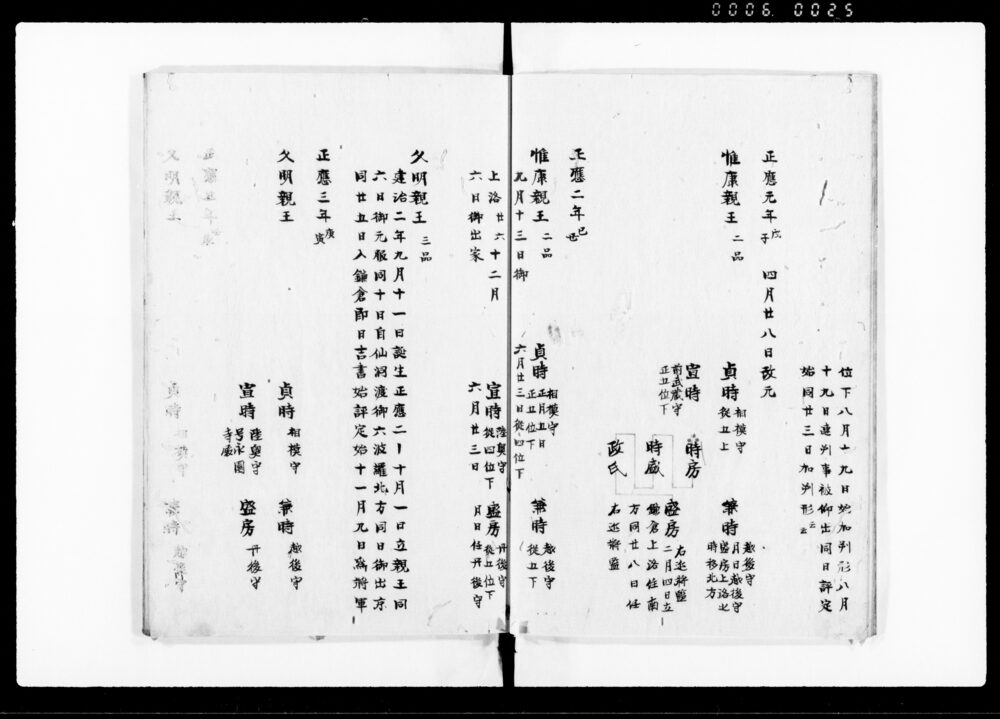 0006 0025
位下八月十九日始加判形八月
十九日連判事被仰出同日評定
始同廿三日加判形云云
正應元年戊子 四月廿八日改元
惟康親王 二品
貞時 相模守 從五上
兼時 越後守
月日越後守
盛房上洛之
時移北方
宣時 前武蔵守 正五位下
時房
時盛
政氏
盛房 右近将監
二月四日立
鎌倉上洛任南
方同廿八日任
右近将監
正應二年己丑
惟康親王 二品
貞時 相模守
正月五日
正五位下
六月廿三日從四位下
兼時 越後守 從五下
九月十三日御
上洛廿六十二月
六日御出家
宣時 陸奥守 從四位下
六月廿三日
盛房 丹後守 從五位下
月日任丹後守
久明親王 三品
建治二年九月十一日誕生正應二ー十月一日立親王同
六日御元服同十日自仙洞渡御六波羅北方同日御出京
同廿五日入鎌倉即日吉書始評定始十一月九日為将軍
正應三年庚寅
久明親王
貞時 相模守
兼時 越後守
宣時 陸奥守
盛房 丹後守